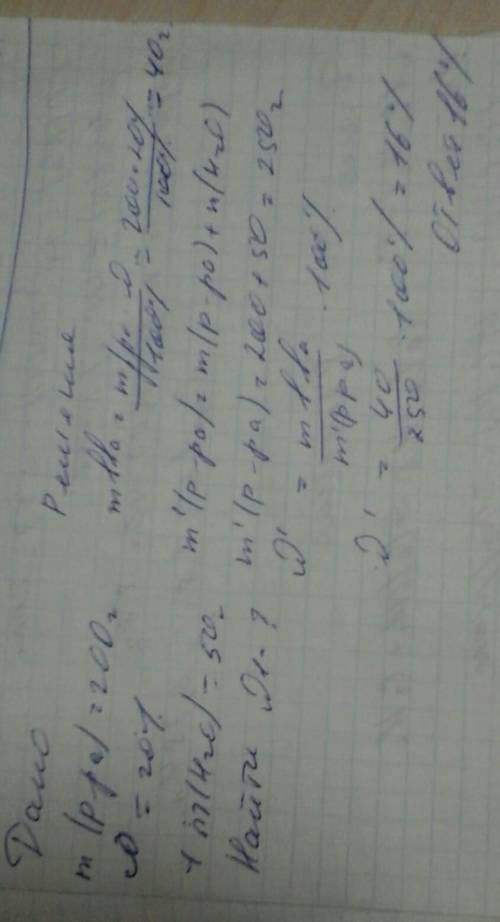 Дано
m(р-ра) = 200г
ω = 20%
+ m(H2O) = 50г
Найти ω1 - ?
Решение
m в-ва = m(р-ра)·ω / 100% = 200·20% / 100% = 40г
m'(р-ра) = m(р-ра) + m(H2O)
m'(р-ра) = 200 + 50 = 250г
ω' = m в-ва / m'(р-ра) · 100%
ω' = 40 / 250 · 100% = 16%
Ответ 16%